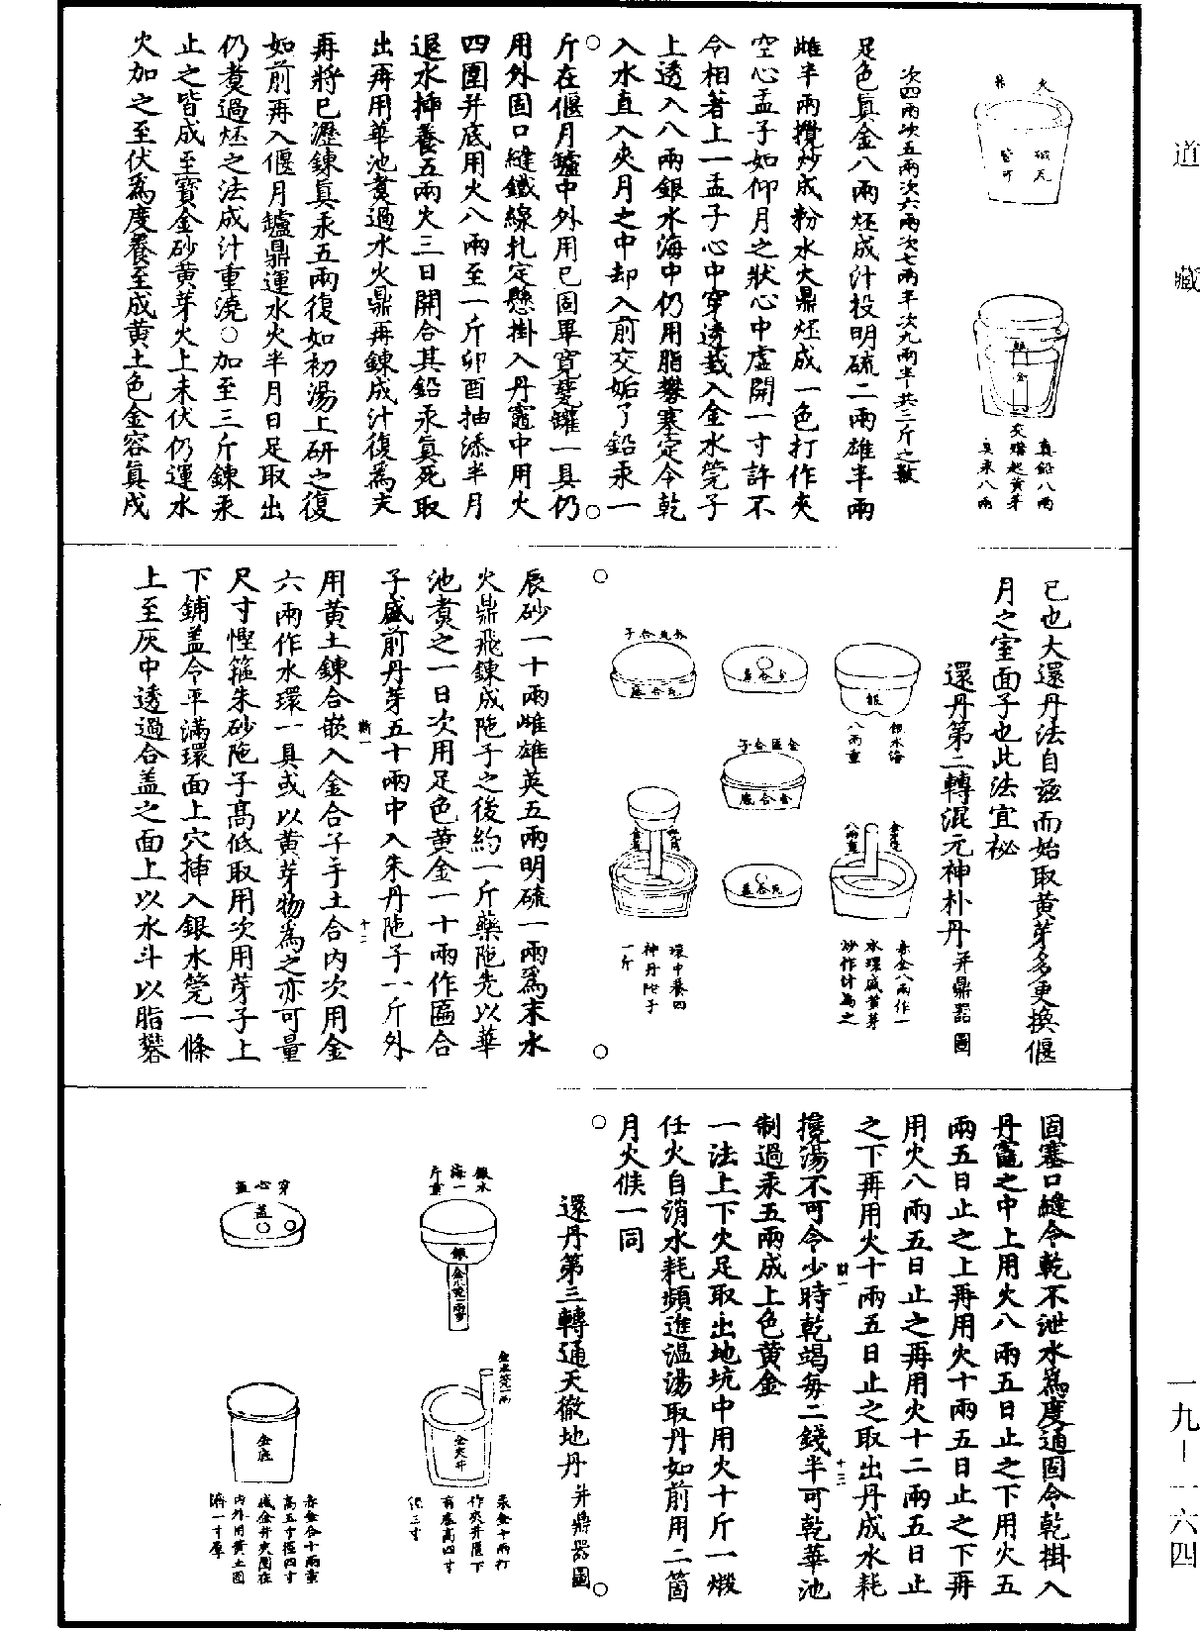 道藏
真鉛八兩
次四兩次五兩次六兩次七兩半次九兩半共二斤之數
足色真金八兩烴成汁投明硫二兩雄半兩
雌半兩攪炒成粉水火鼎烴成一色打作夾
空心盂子如仰月之狀心中虛開一寸許不
令相著上一盂子心中穿透葢入金水筦子
上透入八兩銀水海中仍用脂礬塞定令乾
入水直入夾月之中却入前交姤了鉛汞一
斤在偃月爐中外用已固畢寬甕罐一具仍
用外固口縫鐵線扎定懸掛入丹竈中用火
四圍并底用火八兩至一斤卯酉抽添半月
退水挿養五兩火三日開合其鉛汞真死取
出再用華池煑過水火鼎再鍊成汁復爲夫
再將已瀝鍊真汞五兩復如初湯上研之復
如前再入偃月爐鼎運水火半月日足取出
仍煑過烴之法成汁重澆○加至三斤鍊汞
止之皆成至寶金砂黄芽火上未伏仍運水
火加之至伏爲度養至成黄土色金容真戍
已也大還丹法自兹而始取黄芽多更換偃
月之室面子也此法宜祕
還丹第二轉混元神朴丹并鼎器圖
銀
銀水海
八兩重
赤金八兩作一
水環盛黄芽
砂作汁爲之
金匾合子
金合底
環中養四
神丹陁子
一斤
辰砂一十兩雌雄英五兩明硫一兩爲末水
火鼎飛鍊成陁子之後約一斤藥陁先以華
池煑之一日次用足色黄金一十兩作匾合
子盛前丹芽五十兩中入朱丹陁子一斤外
用黄土鍊合嵌入金合子于土合内次用金
六兩作水環一具或以黄芽物爲之亦可量
尺寸慳箍朱砂陁子高低取用次用芽子上
下鋪盖令平滿環面上穴挿入銀水筦一條
上至灰中透過合盖之面上以水斗以脂礬
固塞口縫令乾不泄水爲度通固令乾掛入
丹竈之中上用火八兩五日止之下用火五
兩五日止之上再用火十兩五日止之下再
用火八兩五日止之再用火十二兩五日止
之下再用火十兩五日止之取出丹成水耗
攙湯不可令少時乾竭每二錢半可乾華池
制過汞五兩成上色黄金
一法上下火足取出地坑中用火十斤一煅
任火自消水耗頻進温湯取丹如前用二箇
月火候一同
還丹第三轉通天徹地丹并鼎器圖
銀水
海一
斤重
銀
穿心盖
盖
金夾井
金底
紫金十兩打
作夾井匱下
有基高四寸
赤金合十兩重
高五寸徑四寸
盛金井夾圍在
内外用黄土固
濟一寸厚
一九－一六四